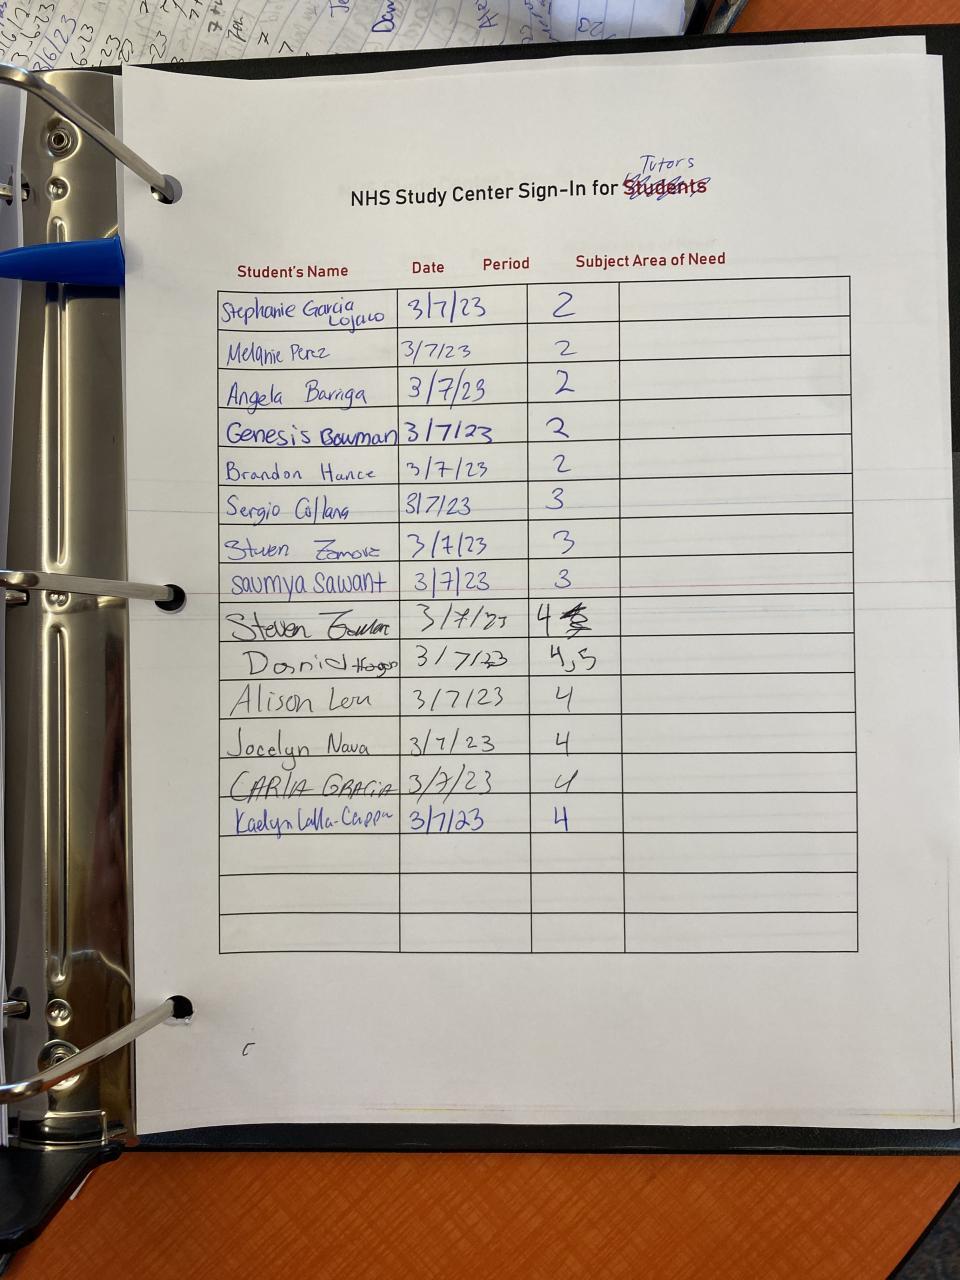 Tutors
NHS Study Center Sign-In for Students
Student's Name Date Period Subject Area of Need
Stephanie Garcia Lojano 3/7/23 2
Melanie Perez 3/7/23 2
Angela Barriga 3/7/23 2
Genesis Bowman 3/7/23 2
Brandon Hance 3/7/23 2
Sergio Collana 3/7/23 3
3/7/23 3
Saumya Sawant 3/7/23 3
Steven 3/7/23 4
3/7/23 4,5
Alison 3/7/23 4
Jocelyn Nava 3/7/23 4
CARLA GRACIA 3/7/23 4
Kaelyn 3/7/23 4